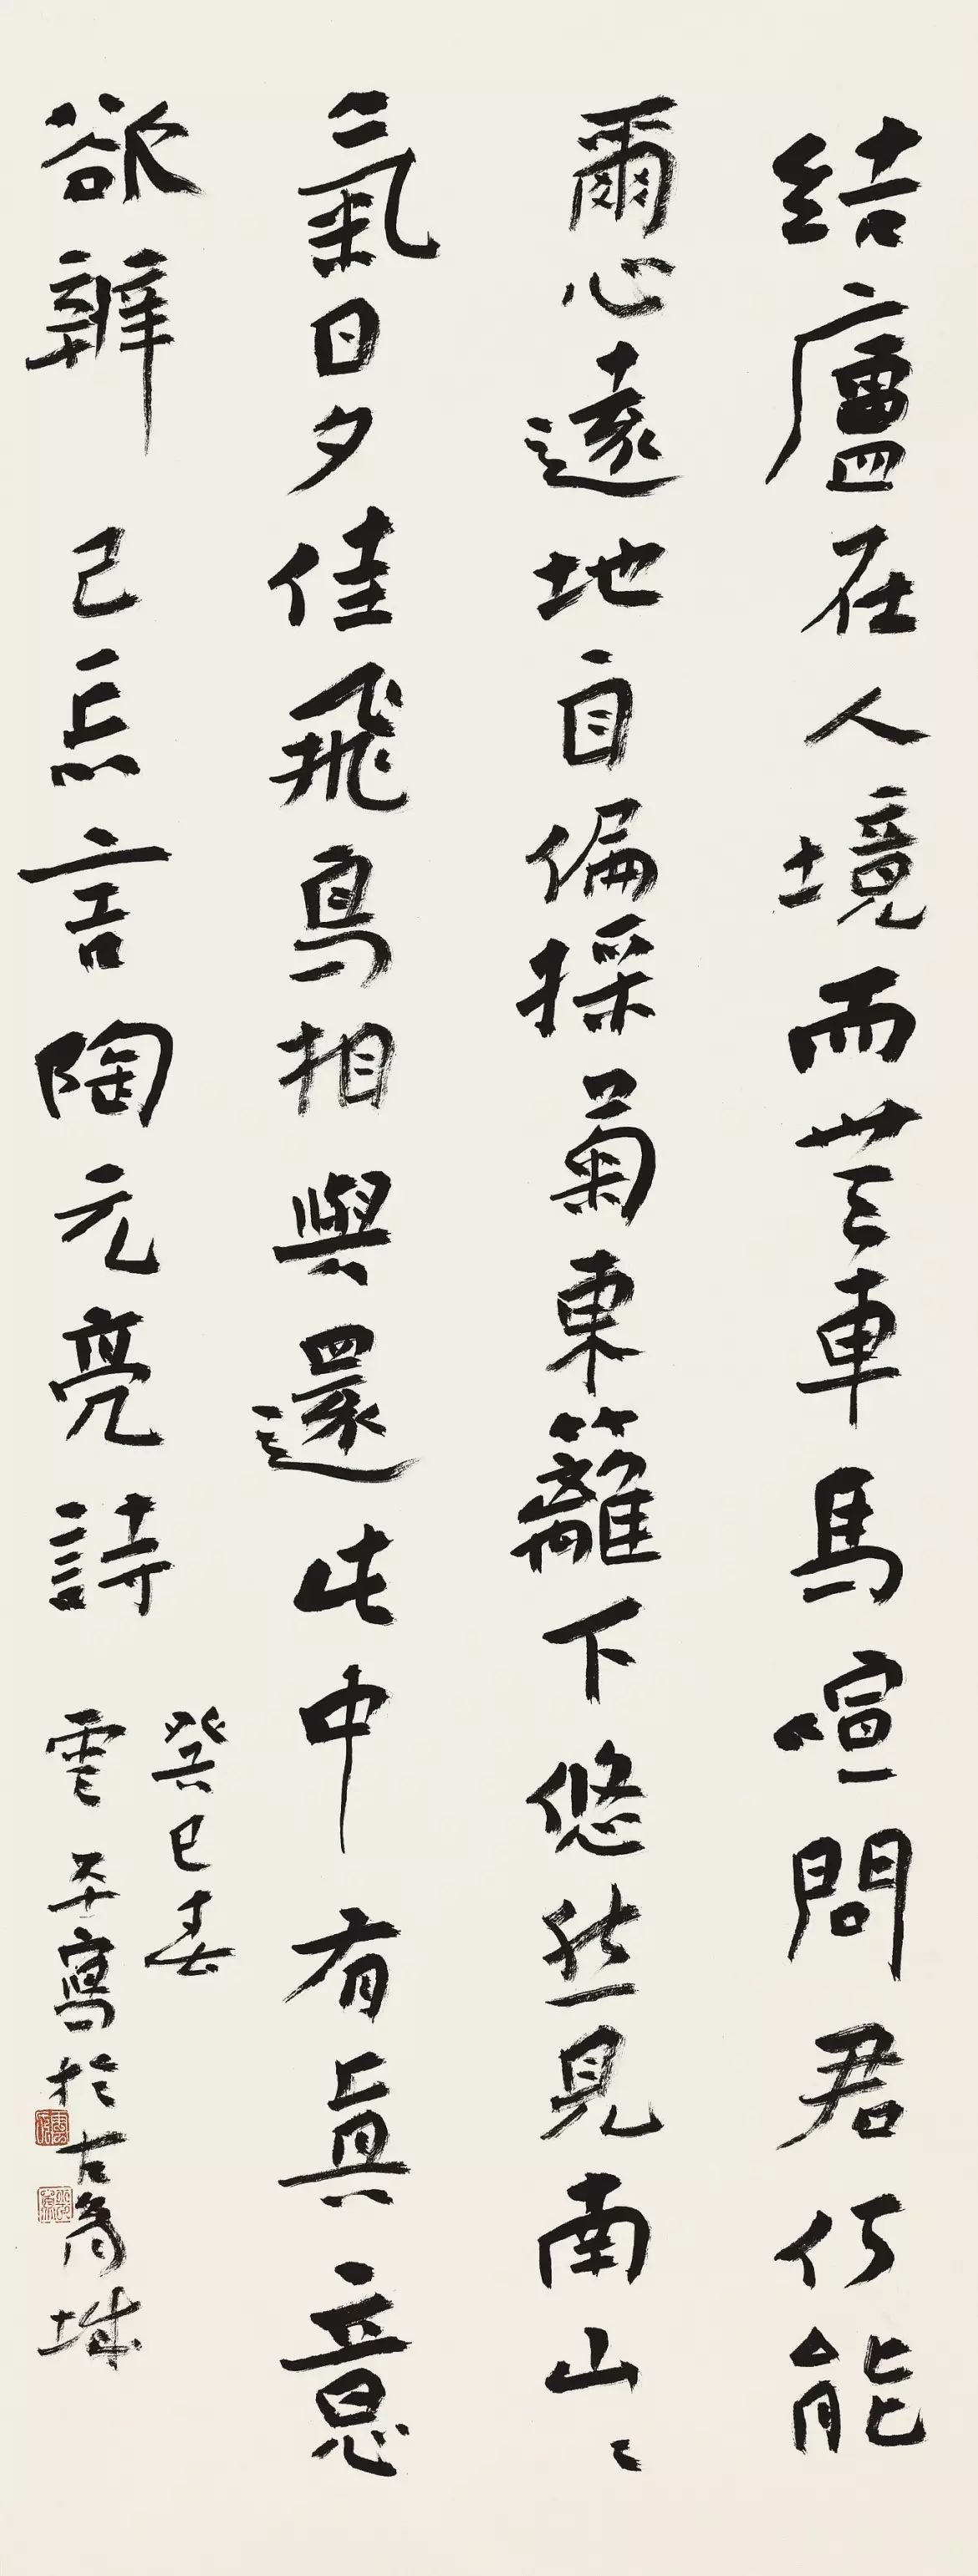 結廬在人境而無車馬喧問君何能
爾心遠地自偏採菊東籬下悠然見南山〻
氣日夕佳飛鳥相與還此中有眞意
欲辨已忘言陶元亮詩
癸巳春
雲平寫於古城